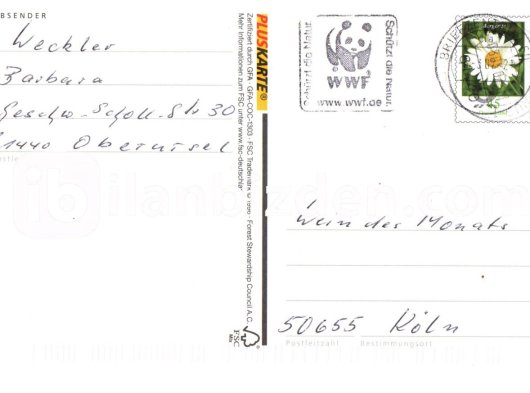 BSENDER
Weckler
Barbara
Geschw.-Scholl-Str 30
61440 Oberursel
PLUSKARTE®
Zertifiziert durch GFA · GFA-COC-1303 · FSC Trademark © 1996 · Forest Stewardship Council A.C.
Mehr Informationen zum FSC unter www.fsc-deutschland
FSC
Mix
WWF
Schützt die Natur.
www.wwf.de
BRIEF
45
ilanbizden.com
Wein des Monats
50655 Köln
Postleitzahl Bestimmungsort